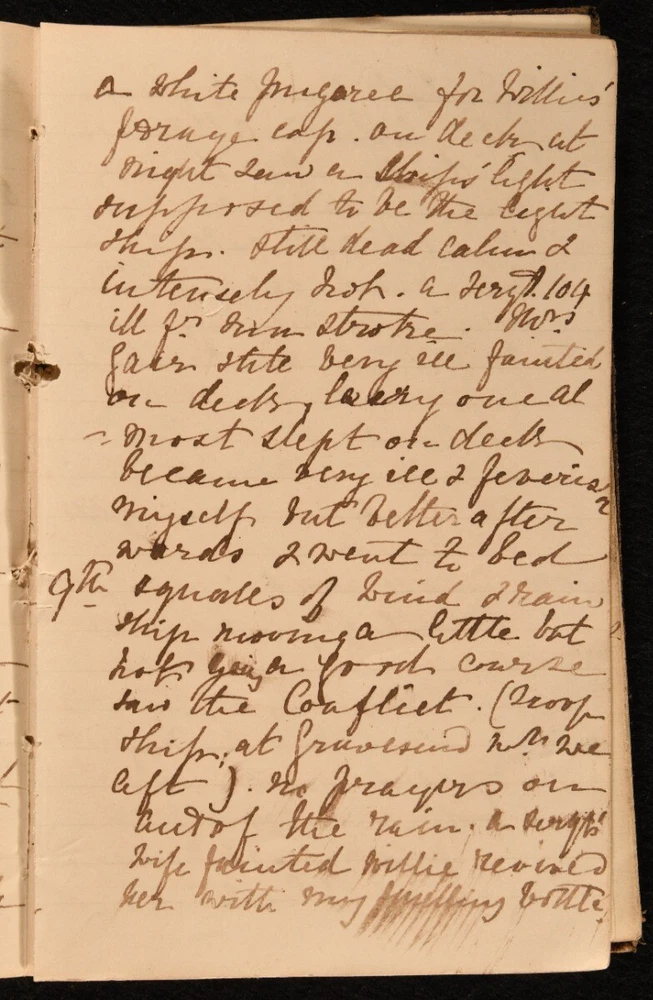 a white Pugaree for Willies'
forage cap. on deck at
night saw a ships' light
supposed to be the light
ship. still dead calm &
intensely hot. a Sergt. 104
ill fr sun stroke. Mrs
Gair still very ill fainted
on deck, every one al
= most slept on deck
became very ill & feverish
myself but better after
wards & went to bed
9th squales of wind & rain
ship moving a little but
not a good course
saw the Conflict. (troop
ship, at Gravesend wn we
left). no prayers on
act of the rain. a sergts'
wife fainted willie revived
her with my smelling bottle.